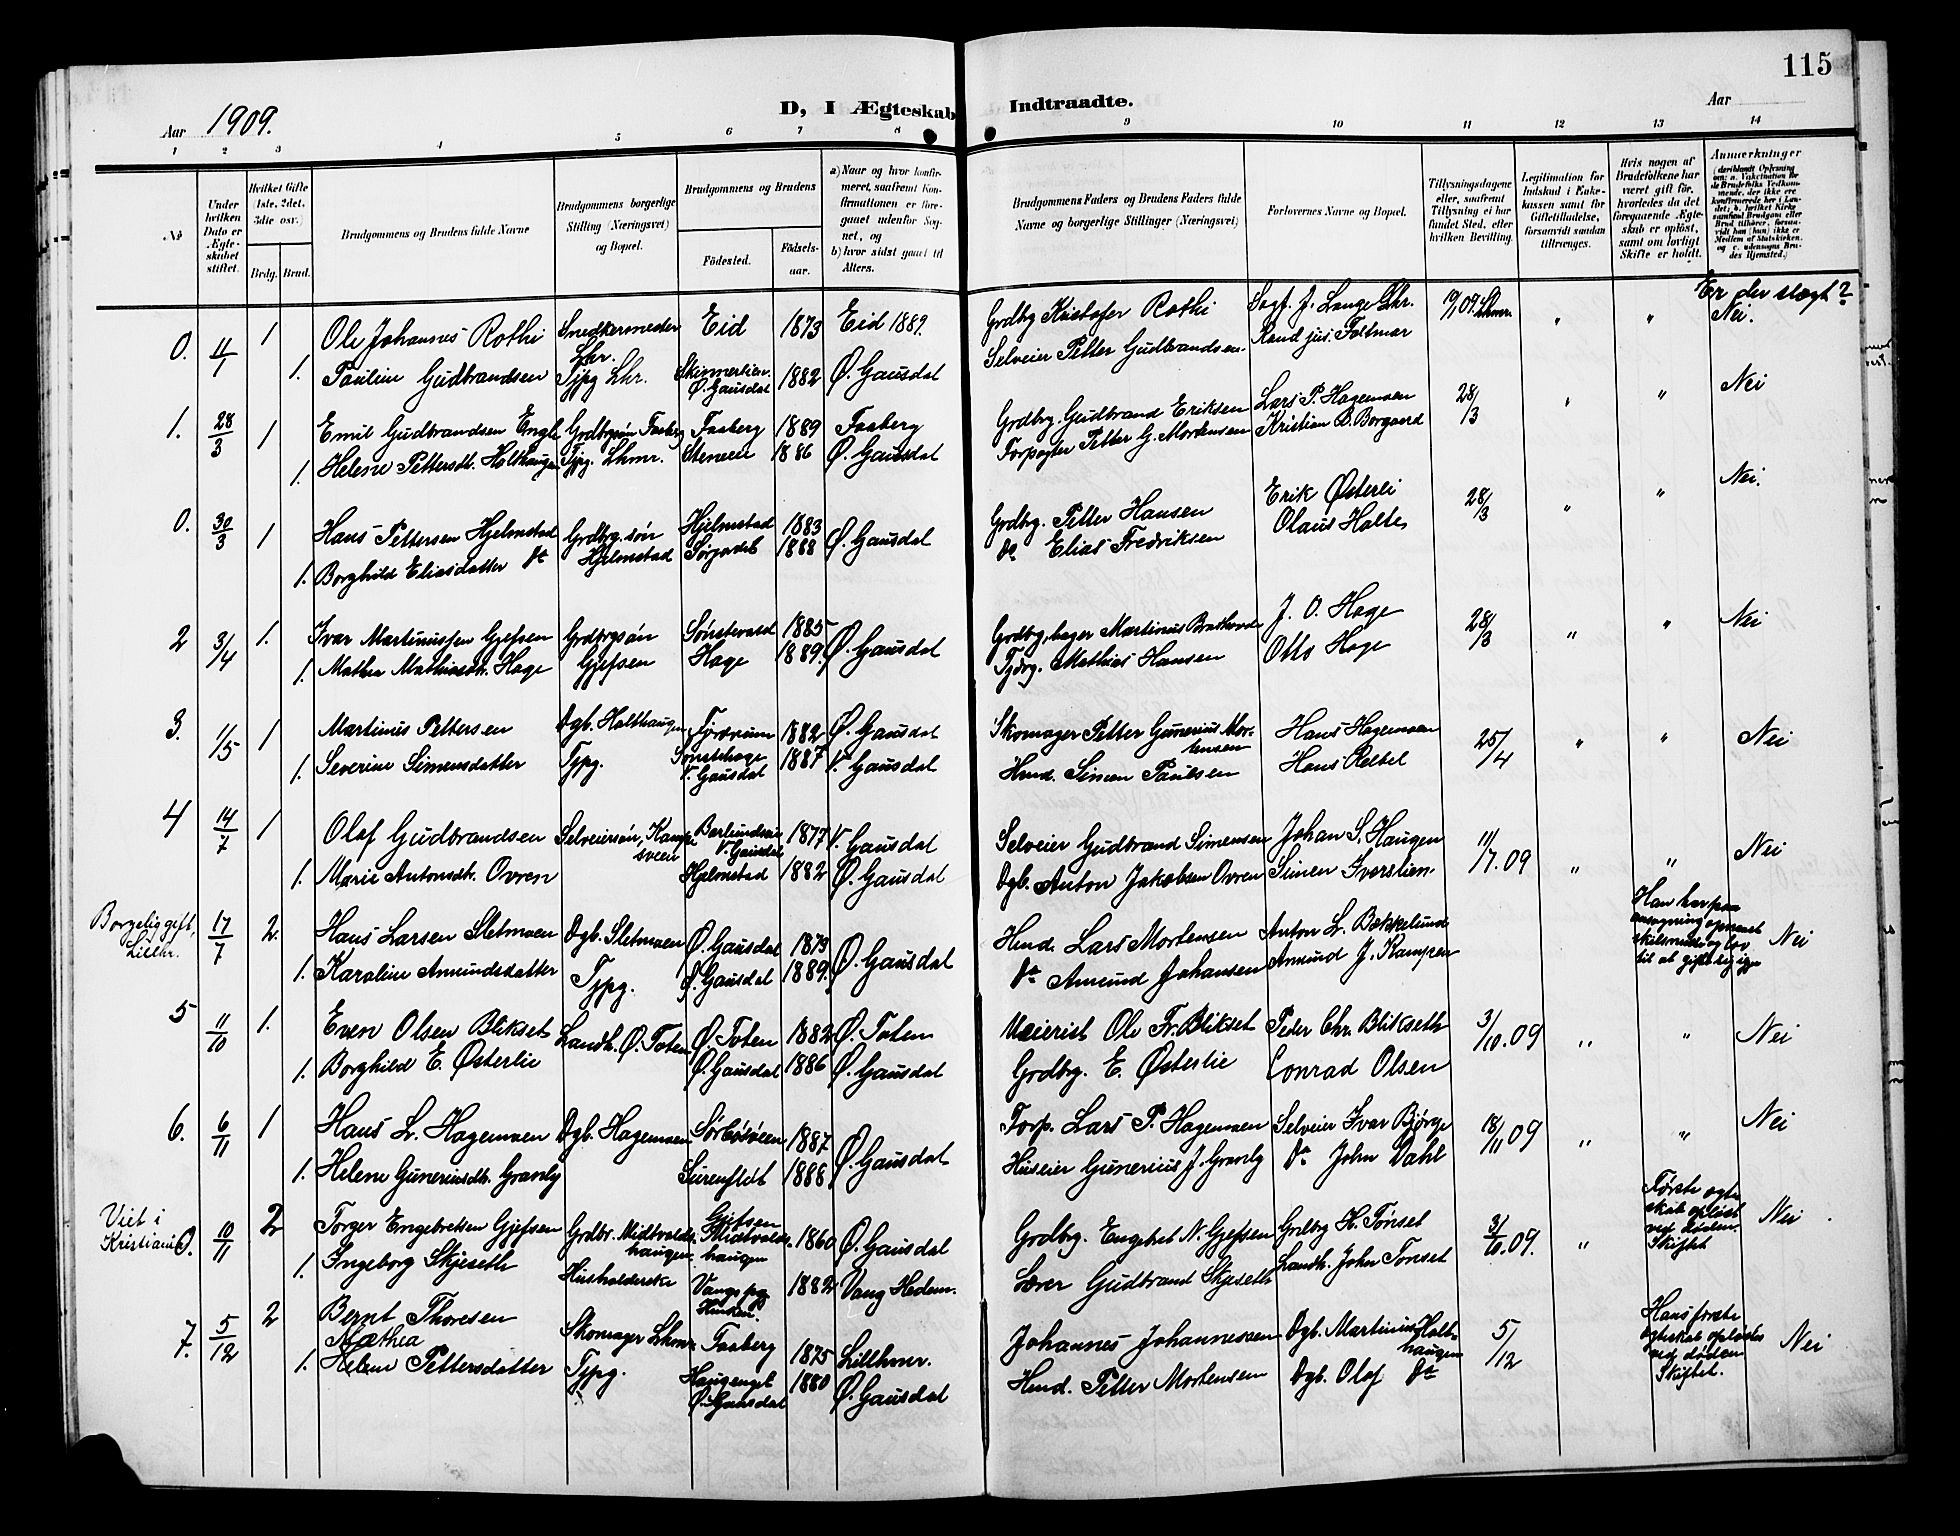 115
D, I Ægteskab Indtraadte.
Aar 1909.
Aar
1 2 3 4 5 6 7 8 9 10 11 12 13 14
№
Under hvilken Dato er Ægteskabet stiftet.
Hvilket Gifte (1ste, 2det, 3die osv.)
Brdg. Brud.
Brudgommens og Brudens fulde Navne
Brudgommens borgerlige Stilling (Næringsvei) og Bopæl.
Brudgommens og Brudens
Fødested.
Fødselsaar.
a) Naar og hvor konfirmeret, saafremt Konfirmationen er foregaaet udenfor Sognet, og
b) hvor sidst gaaet til Alters.
Brudgommens Faders og Brudens Faders fulde Navne og borgerlige Stillinger (Næringsvei)
Forlovernes Navne og Bopæl.
Tillysningsdagene eller, saafremt Tillysning ei har fundet Sted, efter hvilken Bevilling.
Legitimation for Indskud i Enkekassen samt for Giftetilladelse, forsaavidt saadan tiltrænges.
Hvis nogen af Brudefolkene har været gift før, hvorledes da det foregaaende Ægteskab er opløst, samt om lovligt Skifte er holdt.
Anmærkninger
Er der slægt?
0. 11/1 1 Ole Johannes Rothi Snedkermester Lhr. Eid 1873 Eid 1889. Grdbrg Kristofer Rothi Sagf. J. Lange Lhr. Nei.
1. Pauline Gudbrandsen Tjpg Lhr. Ø. Gausdal 1882 Ø. Gausdal Selveier Petter Gudbrandsen. Kand jus. Foltmar
1. 28/3 1 Emil Gudbrandsen Engh Grdbrgsøn Faaberg Faaberg 1889 Faaberg Grdbrg. Gudbrand Eriksen Lars P. Hagemoen 28/3 " " Nei
1. Helene Pettersdt. Holthaugen Tjpg. Lhmr. Steneie 1886 Ø. Gausdal Forpagter Petter G. Mortensen Kristian B. Borgaard
0. 30/3 1 Hans Pettersen Hjelmstad Grdbrg.søn Hjelmstad Hjelmstad 1883 Ø. Gausdal Grdbrg. Petter Hansen Erik Østerlei 28/3 " " Nei.
1. Borghild Eliasdatter 1888 Do Elias Fredriksen Olaus Holte
2 3/4 1. Ivar Martinussen Gjefsen Grdbrgsøn Gjefsen 1885 Ø. Gausdal Martinus 28/3 " " Nei
J. O. Hage
1. Mathea Mathiasdt. Hage Hage 1889. Tjdrg. Mathias Hansen Otto Hage
3. 1/5 1 Martinus Pettersen Dgb. Holthaugen 1882 Ø. Gausdal Skomager Petter Gunerius Mortensen Hans Hagemoen 25/4 " " Nei
1. Severine Simensdatter Tjpg. Sønstehage V. Gausdal 1887 V. Gausdal Hmd. Simen Paulsen Hans
4 14/7 1 Olaf Gudbrandsen Selveiersøn, Kampesveen V. Gausdal 1877 V. Gausdal Selveier Gudbrand Simensen Johan S. Haugen 11/7. 09 " " Nei
1. Marie Antonsdt. Ovren Hjelmstad 1882 Ø. Gausdal Dgb. Anton Jakobsen Ovren Simen Iverslien.
Borgelig gift, Lillhr. 17/7 2. Hans Larsen Sletmoen Dgb. Sletmoen Ø. Gausdal 1879 Ø. Gausdal Hmd. Lars Mortensen Anton L. Bekkelund Han har paa ansøgning opnaaet skilsmisse og lov til at gifte sig igjen Nei
1. Karoline Amundsdatter Tjpg. Ø. Gausdal 1889. Do Amund Johansen Amund J. Kampen
5 11/10 1. Even Olsen Blikset Landh. Ø. Toten Ø. Toten 1882 Ø. Toten Meierist Ole Fr. Blikset Peder Chr. Blikseth 3/10. 09 " " Nei
1. Borghild E. Østerlie Ø. Gausdal 1886 Ø. Gausdal Grdbrg. E. Østerlie Conrad Olsen
6. 6/11 1 Hans L. Hagemoen Dgb. Hagemoen Sørbøsveen 1887 Ø. Gausdal Forp. Lars P. Hagemoen Selveier Ivar Bjørge 18/11 09 " " Nei
1. Helene Guneriusdt. Granly 1888 Huseier Gunerius J. Granly Do John Dahl
Viet i Kristiania 0. 10/11 2 Torger Engebretsen Gjefsen Grdbr. Midtvoldshaugen Gjefsen Midtvoldshaugen 1860 Ø. Gausdal Grdbrg. Engebet N. Gjefsen Grdbrg H. Tønset 3/10. 09. " Første egteskab opløst ved døden. Skiftet Nei
1. Ingeborg Skjeseth Husholderske Vangs pg 1882 Vang Hedem. Lærer Gudbrand Skjeseth Landh. John Tønset
7. 5/12 2 Bernt Thoresen Skomager Lhmr Faaberg 1875 Lillhmr. Johannes Johannessen Dgb. Martinus Holthaugen 5/12 Hans første egteskab opløstes ved døden Skiftet. Nei
1. Mathea Helene Pettersdatter Tjpg. Haugenget Ø. Gausdal 1880 Ø. Gausdal Hmd. Petter Mortensen Dgb. Olaf Do